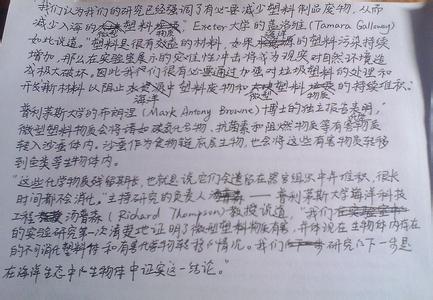 我们认为我们的研究已经强调了有必要减少塑料制品废物,从而
减少入海的微型塑料物质," Exeter大学的盖洛维(Tamara Galloway)
如此说道。"塑料是很有效益的材料,如果海洋的塑料污染持续
增加,那么在实验室展示的灾难性冲击将成为现实对自然环境造
成极大破坏。因此我们很有必要通过加强对垃圾塑料的处理和
开发新材料以阻止海洋中塑料废物和微型物质的持续堆积。"
普利茅斯大学的布朗涅(Mark Antony Browne)博士的独立报告表明,"
微型塑料物质会将诸如碳氢化合物,抗菌素和阻燃物质等有害物质
转入沙蚕体内。沙蚕作为食物链底层生物,也会将这些有害物质转移
到鱼类等生物体内。
"这些化学物质残留期长,也就是说它们会通在器官组织中并堆积,很长
时间都不会消化。"主持研究的负责人——普利茅斯大学海洋科技
工程汤普森(Richard Thompson)教授说道,"我们
的实验研究第一次清楚地证明了微型塑料物质有害,并体现在生物体内存在
的不可消化塑料件和有害化学物转移情况。我们研究的下一步是
在海洋生态中生物体中证实这一结论。"